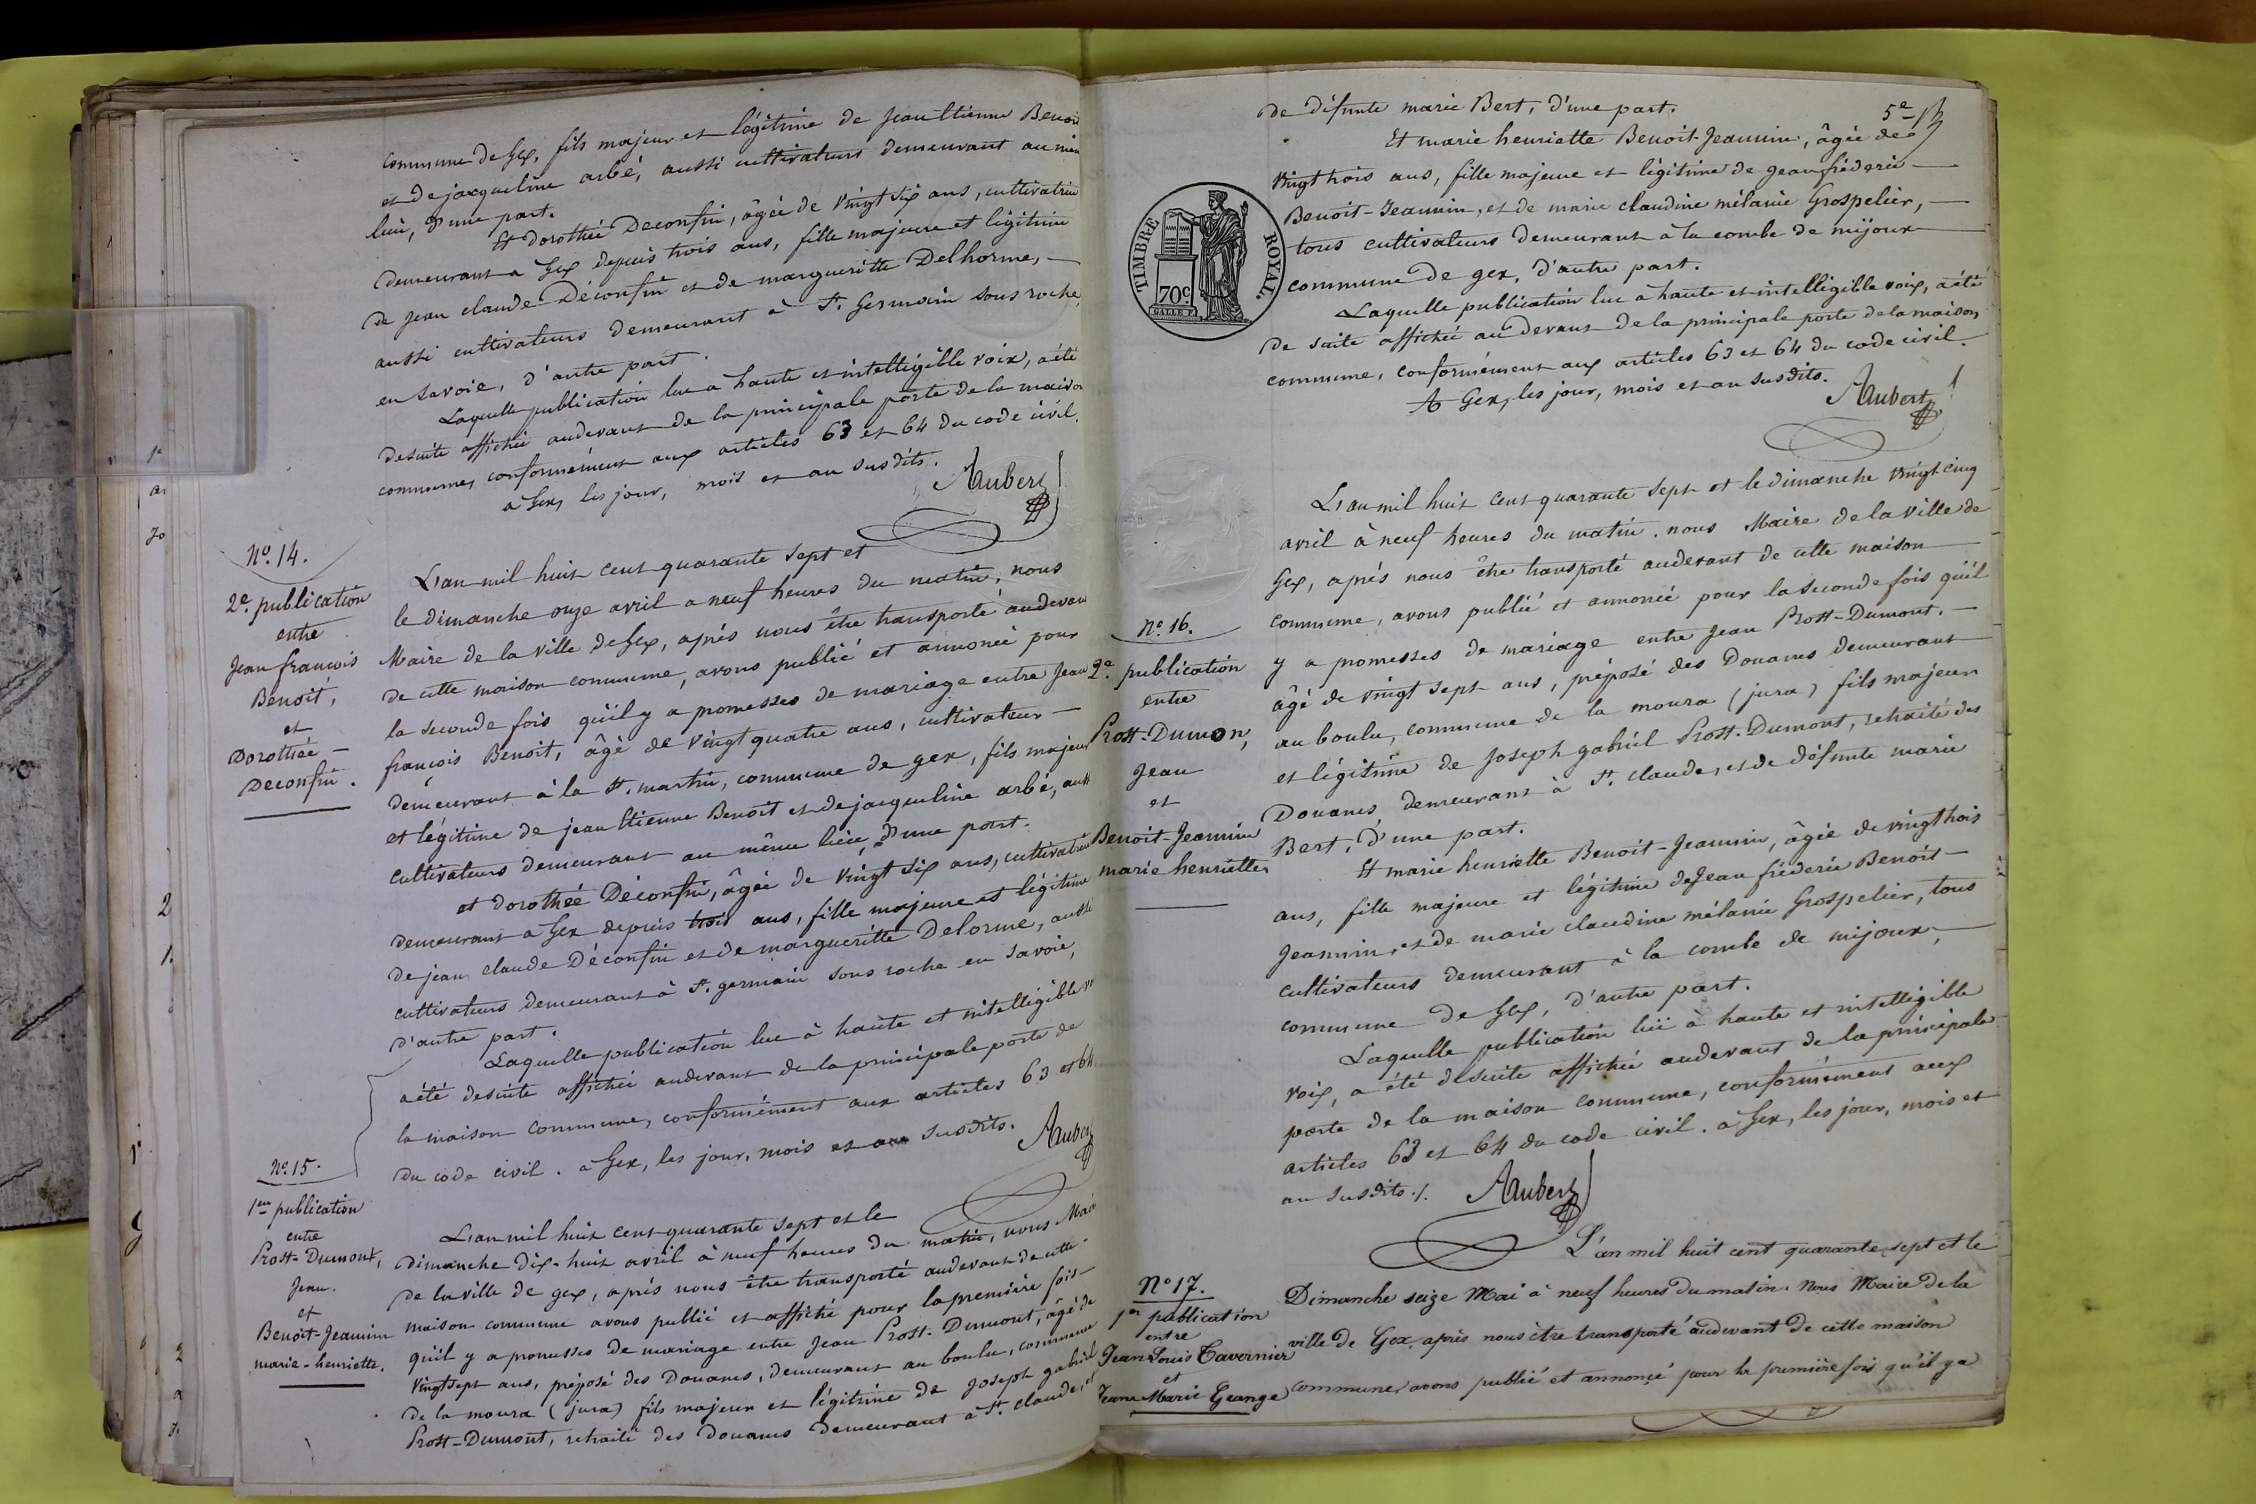 commune de Gex, fils majeur et légitime de Jean Etienne Benoit
et de jacqueline arbé, aussi cultivateurs demeurant au même
lieu, d'une part.
Et Dorothée Deconfin, âgée de vingt six ans, cultivatrice
demeurant a Gex depuis trois ans, fille majeure et légitime
de jean claude Déconfin et de margueritte Delhorme, —
aussi cultivateurs demeurant à St. Germain sous roche,
en Savoie, d'autre part.
Laquelle publication lue a haute et intelligible voix, a été
desuite affichée audevant de la principale porte de la maison
commune, conformément aux articles 63 et 64 du code civil.
a Gex, les jour, mois et an susdits.
JAubert
No. 14.
2e. publication
entre
Jean francois
Benoit,
et
Dorothée —
Deconfin.
L'an mil huit cent quarante sept et
le dimanche onze avril a neuf heures du matin, nous
Maire de la ville de Gex, aprés nous être transporté audevant
de cette maison commune, avons publié et annoncé pour
la seconde fois qu'il y a promesses de mariage entre Jean
francois Benoit, âgé de vingt quatre ans, cultivateur —
demeurant à la St. martin, commune de gex, fils majeur
et légitime de jean Etienne Benoit et de jacqueline arbé, aussi
cultivateurs demeurant au même lieu, d'une part.
et dorothée Déconfin, âgée de vingt six ans, cultivatrice
demeurant a Gex depuis trois ans, fille majeure et légitime
de jean claude Déconfin et de margueritte Delorme, aussi
cultivateurs demeurant à St. germain sous roche en Savoie,
d'autre part.
Laquelle publication lue à haute et intelligible
a été desuite affichée audevant de la principale porte de
la maison commune, conformément aux articles 63 et 64
du code civil. a Gex, les jour, mois et an susdits.
JAubert
No. 15.
1ere publication
entre
Prost-Dumont,
Jean.
et
Benoit-Jeannin
marie-henriette.
L'an mil huit cent quarante sept et le
dimanche dix-huit avril à neuf heures du matin, nous Maire
de la ville de gex, aprés nous être transporté audevant de cette
maison commune avons publié et affiché pour la première fois
qu'il y a promesses de mariage entre Jean Prost-Dumont, âgé de
vingt sept ans, préposé des Douanes, demeurant au boulu, commune
de la moura (jura) fils majeur et légitime de joseph gabriel
Prost-Dumont, retraité des Douanes demeurant à St. claude, et
5e
de défunte marie Bert, d'une part.
Et marie henriette Benoit-Jeannin, âgée de
vingt trois ans, fille majeure et légitime de jean fréderic —
Benoit-Jeannin, et de marie claudine mélanie Grospelier, —
tous cultivateurs demeurant à la combe de mijoux
commune de gex, d'autre part.
TIMBRE ROYAL.
70c
Laquelle publication lue à haute et intelligible voix, a été
de suite affichée au devant de la principale porte de la maison
commune, conformément aux articles 63 et 64 du code civil.
A Gex, les jour, mois et an susdits.
JAubert
No. 16.
2e. publication
entre
Prost-Dumon,
Jean
et
Benoit-Jeannin
marie henriette
L'an mil huit cent quarante sept et le dimanche vingt cinq
avril à neuf heures du matin. nous Maire de la ville de
Gex, aprés nous être transporté audevant de cette maison
commune, avons publié et annoncé pour la seconde fois qu'il
y a promesses de mariage entre Jean Prost-Dumont, —
âgé de vingt sept ans, préposé des Douanes demeurant
au boulu, commune de la moura (jura) fils majeur
et légitime de Joseph gabriel Prost-Dumont, retraité des
Douanes, demeurant à St. claude, et de défunte marie
Bert, d'une part.
Et marie henriette Benoit-Jeannin, âgée de vingt trois
ans, fille majeure et légitime de Jean fréderic Benoit-
Jeannin, et de marie claudine mélanie Grospelier, tous
cultivateurs demeurant à la combe de mijoux, —
commune de Gex, d'autre part.
Laquelle publication lue à haute et intelligible
voix, a été desuite affichée audevant de la principale
porte de la maison commune, conformément aux
articles 63 et 64 du code civil. a Gex, les jour, mois et
an susdits ./.
JAubert
No 17.
1ere publication
entre
Jean Louis Tavernier
et
Jeane Marie Grange
L'an mil huit cent quarante sept et le
Dimanche seize Mai à neuf heures du matin. Nous Maire de la
ville de Gex, après nous être transporté audevant de cette maison
commune, avons publié et annonçé pour la première fois qu'il y a